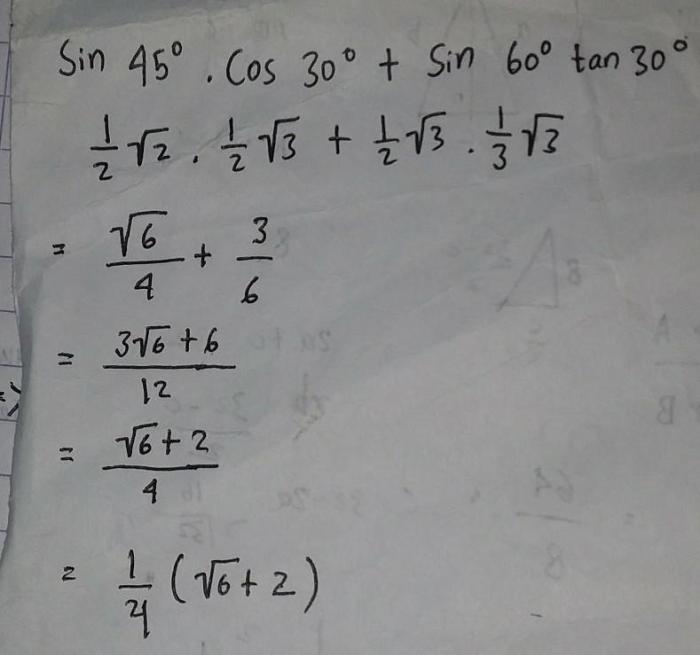 Sin 45° . Cos 30° + Sin 60° tan 30°
1/2 √2 . 1/2 √3 + 1/2 √3 . 1/3 √3
= √6/4 + 3/6
= (3√6 + 6)/12
= (√6 + 2)/4
= 1/4 (√6 + 2)